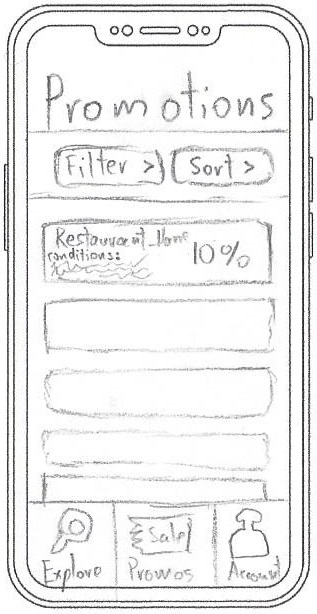 Promotions
Filter > Sort >
Restaurant_Name
conditions: 10%
Sale
Explore Promos Account